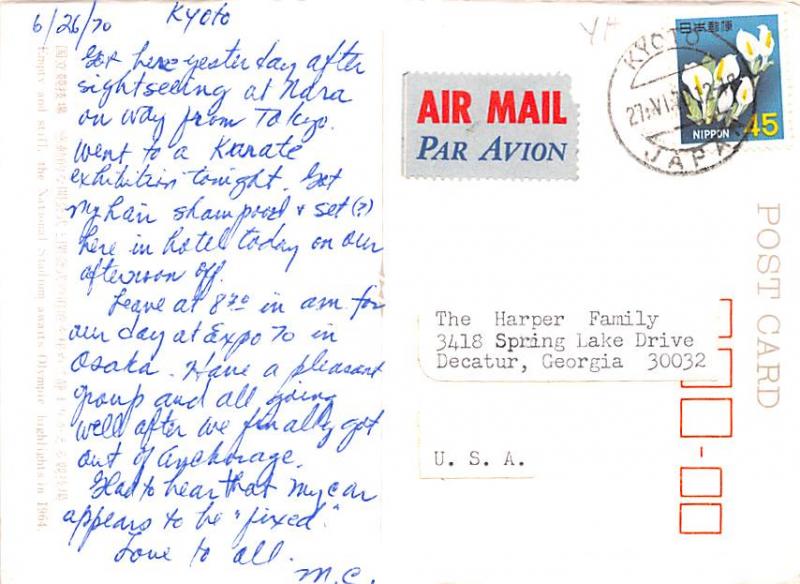 6/26/70 Kyoto
Got here yesterday after
sightseeing at Nara
on way from Tokyo.
Went to a Karate
exhibition tonight. Got
my hair shampood & set (?)
here in hotel today on our
afternoon off.
Leave at 8 30 in am for
our day at Expo 70 in
Osaka. Have a pleasant
group and all going
well after we finally got
out of Anchorage.
Glad to hear that my car
appears to be "fixed."
Love to all.
M.C.
Empty and still, the National Stadium awaits Olympic highlights in 1964.
国立競技場
AIR MAIL
PAR AVION
KYOTO
JAPAN
日本郵便
NIPPON 45
POST CARD
The Harper Family
3418 Spring Lake Drive
Decatur, Georgia 30032
U. S. A.